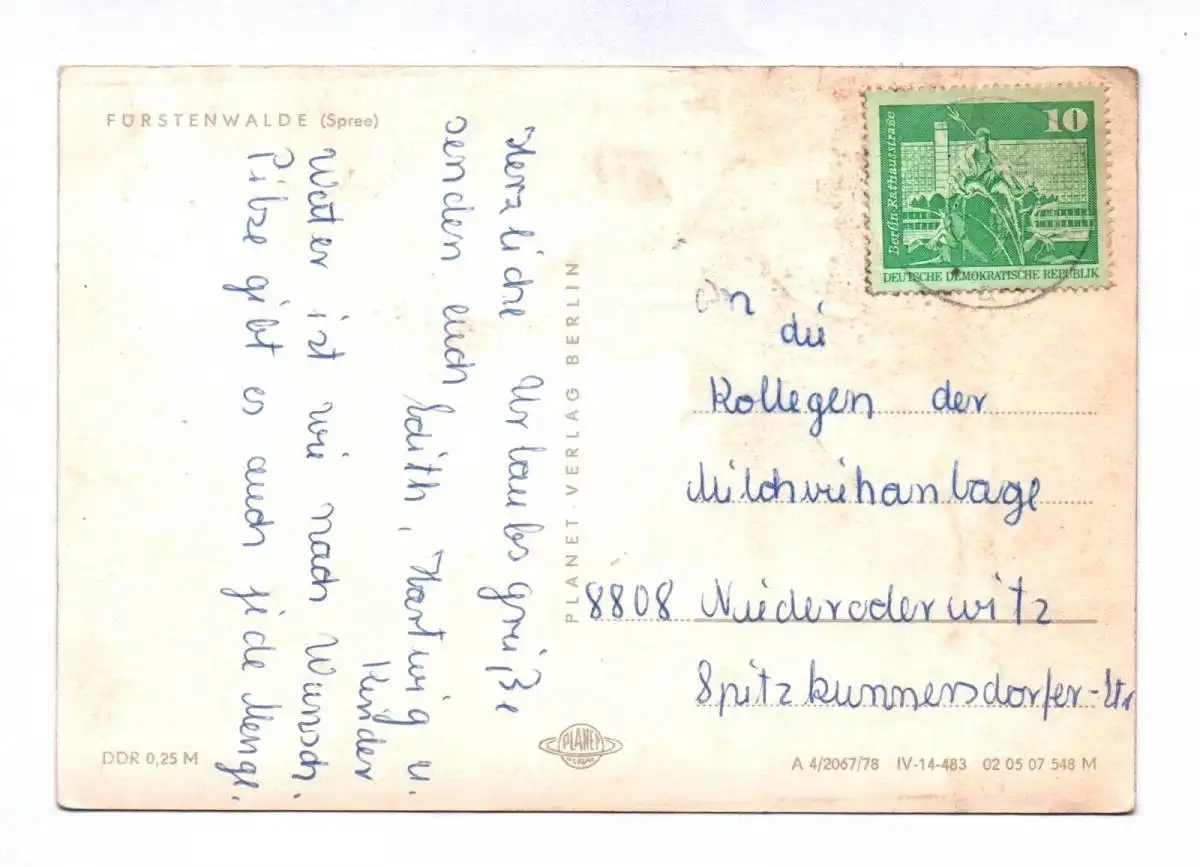 FÜRSTENWALDE (Spree)
Herzliche Urlaubsgrüße
senden euch
Edith, Hartwig u.
Kinder
Wetter ist wie nach Wunsch.
Pilze gibt es auch jede Menge.
PLANET-VERLAG BERLIN
10
Berlin · Rathausstraße
DEUTSCHE DEMOKRATISCHE REPUBLIK
An
die
Kollegen der
Milchviehanlage
8808 Niederoderwitz
Spitzkunnersdorfer-Str
DDR 0,25 M
PLANET
VERLAG
A 4/2067/78 IV-14-483 02 05 07 548 M